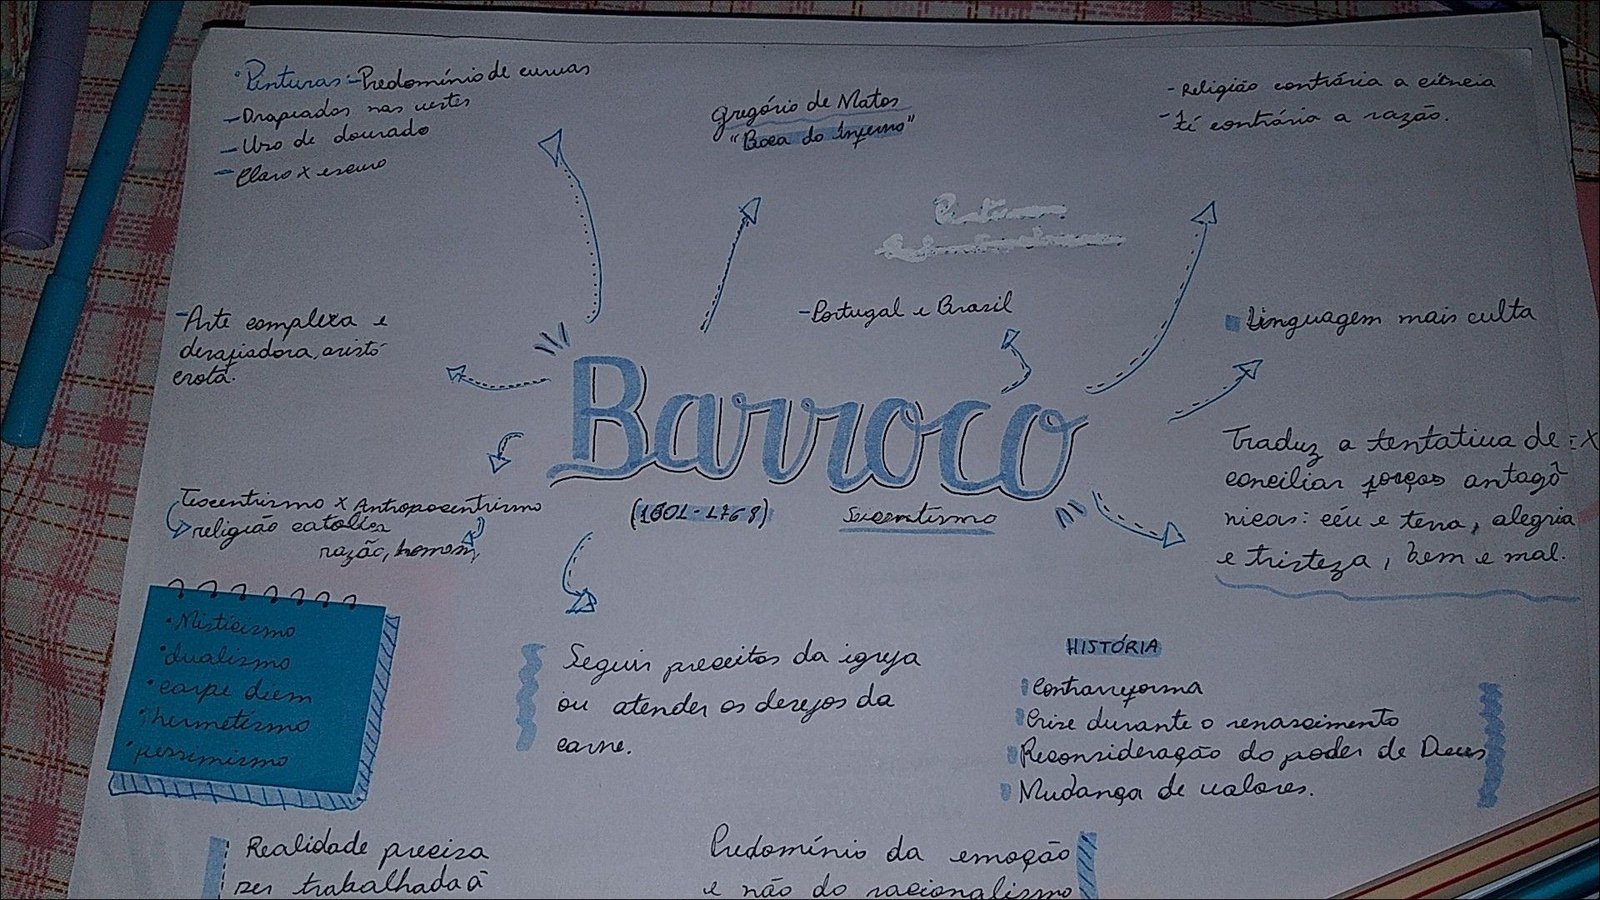 • Pinturas:- Predomínio de curvas
- Drapeados nas vestes
- Uso de dourado
- Claro x escuro
Gregório de Matos
"Boca do Inferno"
- Religião contrária a ciência
- Fé contrária a razão.
- Portugal e Brasil
Linguagem mais culta
- Arte complexa e
desafiadora, aristo
crota.
Barroco
(1601-1768)
Seiscentismo
Traduz a tentativa de
conciliar forças antagô
nicas: céu e terra, alegria
e tristeza, bem e mal.
Teocentrismo x Antropocentrismo
religião católica
razão, homem,
• Misticismo
• dualismo
• carpe diem
• hermetismo
• pessimismo
Seguir preceitos da igreja
ou atender os desejos da
carne.
HISTÓRIA
Contrarreforma
Crise durante o renascimento
Reconsideração do poder de Deus
Mudança de valores.
Realidade precisa
ser trabalhada à
Predomínio da emoção
e não do racionalismo